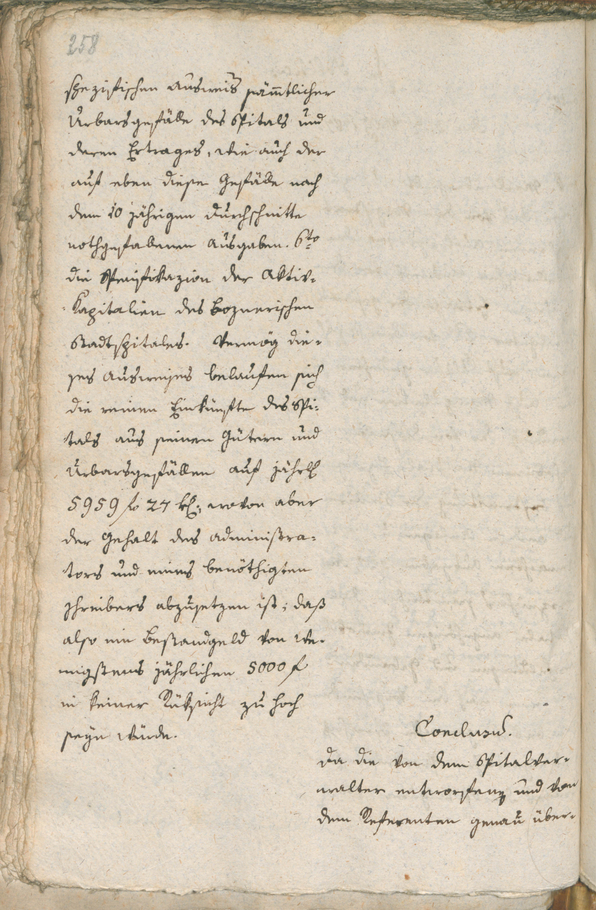 258
spezifischen Ausweis sämtlicher
Urbarsgefälle des Spitals und
deren Ertrages, wie auch der
auf eben diese Gefälle nach
dem 10 jährigen Durchschnitte
nothgehabenen Ausgaben. 6to
die Spezifikazion der Aktiv-
Kapitalien des Boznerischen
Stadtspitales. Vermög die-
ses Ausweises belaufen sich
die reinen Einkünfte des Spi-
tals aus seinen Gütern und
Urbarsgefällen auf jährl
5959 f 27 kr, wovon aber
der Gehalt des Administra-
tors und eines benöthigten
Schreibers abzusetzen ist; daß
also ein Bestandgeld von we-
nigstens jährlichen 5000 f
in keiner Rüksicht zu hoch
seyn würde.
Conclusus.
Da die von dem Spitalver-
walter entworfene und von
dem Referenten genau über-